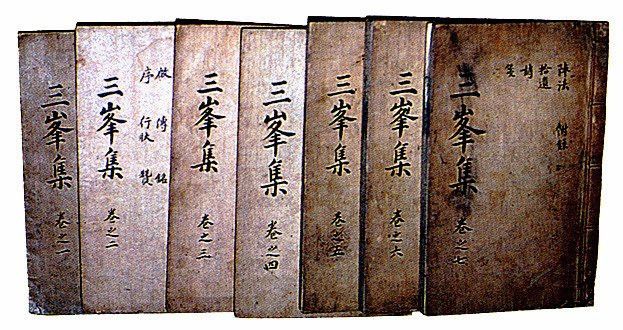 三峯集
卷之一
三峯集
卷之二
傳 銘
序 行狀
三峯集
卷之三
三峯集
卷之四
三峯集
卷之五
三峯集
卷之六
陣法 附錄
拾遺
三峯集
卷之七